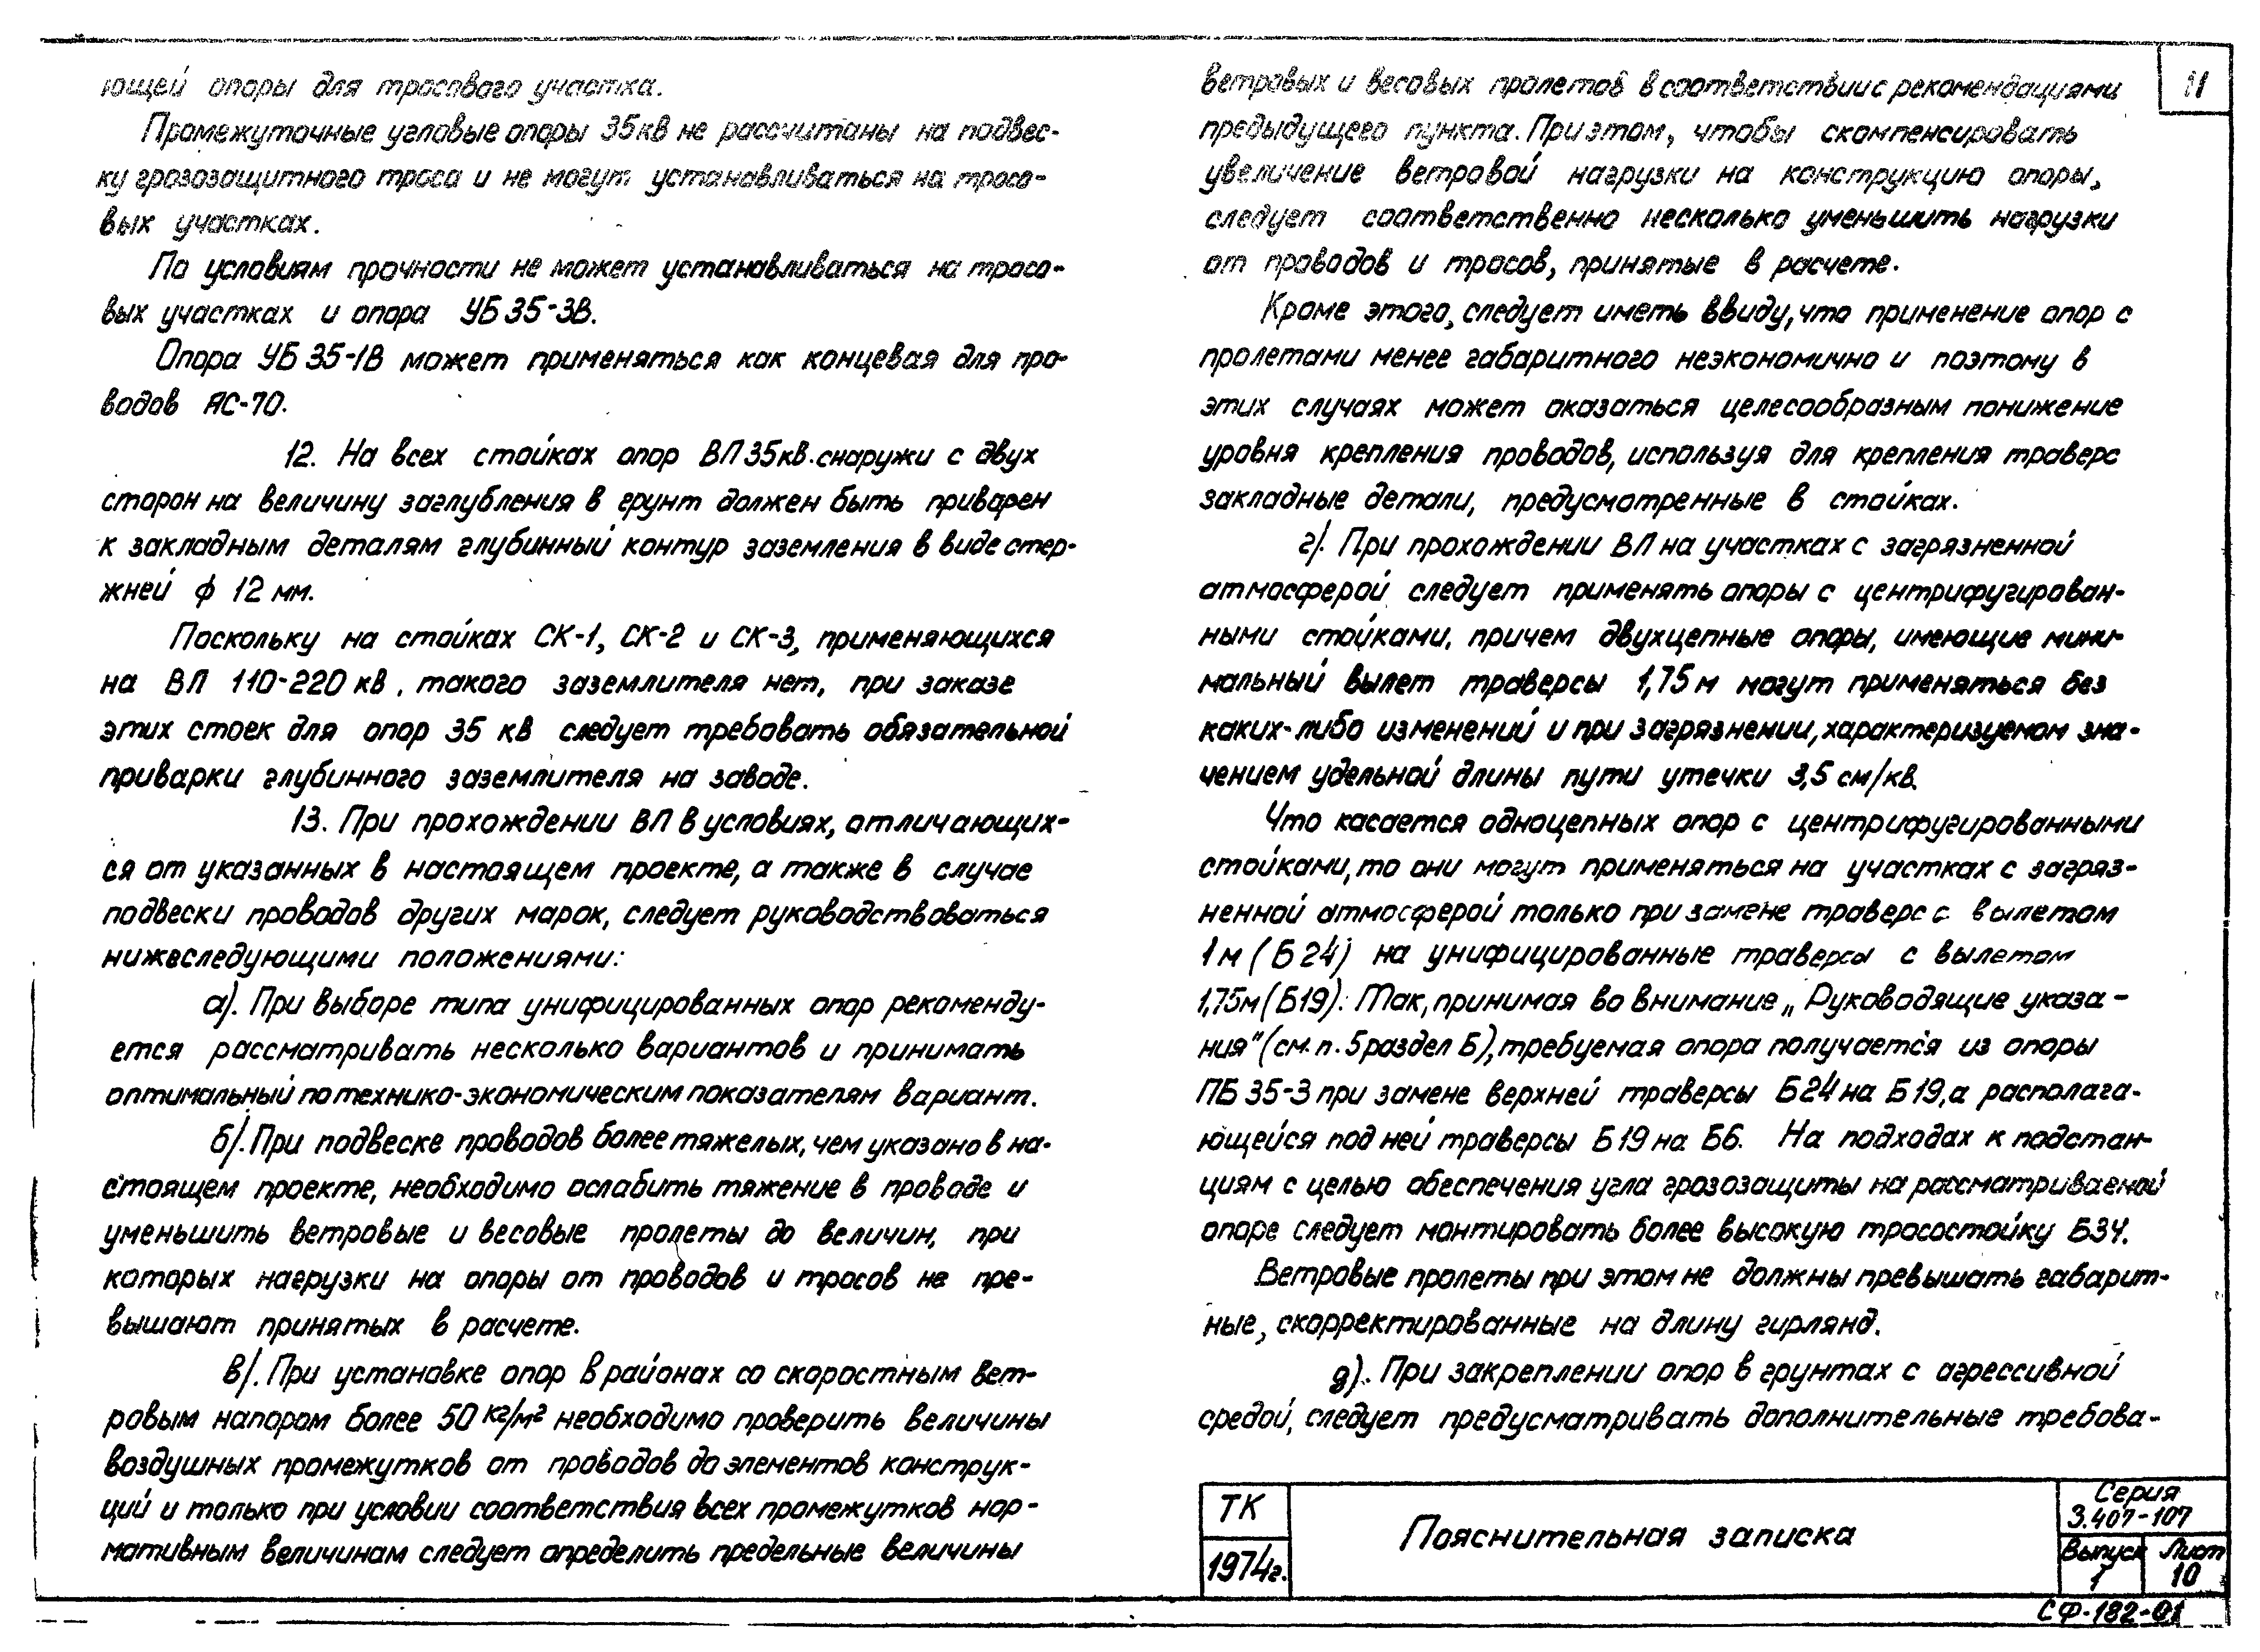 ющей опоры для тросового участка.
Промежуточные угловые опоры 35кв не рассчитаны на подвес-
ку грозозащитного троса и не могут устанавливаться на тросо-
вых участках.
По условиям прочности не может устанавливаться на тросо-
вых участках и опора УБ 35-3В.
Опора УБ 35-1В может применяться как концевая для про-
водов АС-70.
12. На всех стойках опор ВЛ 35кв снаружи с двух
сторон на величину заглубления в грунт должен быть приварен
к закладным деталям глубинный контур заземления в виде стер-
жней ф 12 мм.
Поскольку на стойках СК-1, СК-2 и СК-3, применяющихся
на ВЛ 110-220 кв, такого заземлителя нет, при заказе
этих стоек для опор 35 кв следует требовать обязательной
приварки глубинного заземлителя на заводе.
13. При прохождении ВЛ в условиях, отличающих-
ся от указанных в настоящем проекте, а также в случае
подвески проводов других марок, следует руководствоваться
нижеследующими положениями:
а). При выборе типа унифицированных опор рекоменду-
ется рассматривать несколько вариантов и принимать
оптимальный по технико-экономическим показателям вариант.
б). При подвеске проводов более тяжелых, чем указано в на-
стоящем проекте, необходимо ослабить тяжение в проводе и
уменьшить ветровые и весовые пролеты до величин, при
которых нагрузки на опоры от проводов и тросов не пре-
вышают принятых в расчете.
в). При установке опор в районах со скоростным вет-
ровым напором более 50 кг/м² необходимо проверить величины
воздушных промежутков от проводов до элементов конструк-
ций и только при условии соответствия всех промежутков нор-
мативным величинам следует определить предельные величины
ветровых и весовых пролетов в соответствии с рекомендациями
предыдущего пункта. При этом, чтобы скомпенсировать
увеличение ветровой нагрузки на конструкцию опоры,
следует соответственно несколько уменьшить нагрузки
от проводов и тросов, принятые в расчете.
Кроме этого, следует иметь ввиду, что применение опор с
пролетами менее габаритного неэкономично и поэтому в
этих случаях может оказаться целесообразным понижение
уровня крепления проводов, используя для крепления траверс
закладные детали, предусмотренные в стойках.
г). При прохождении ВЛ на участках с загрязненной
атмосферой следует применять опоры с центрифугирован-
ными стойками, причем двухцепные опоры, имеющие мини-
мальный вылет траверсы 1,75 м могут применяться без
каких-либо изменений и при загрязнении, характеризуемом зна-
чением удельной длины пути утечки 3,5 см/кв.
Что касается одноцепных опор с центрифугированными
стойками, то они могут применяться на участках с загряз-
ненной атмосферой только при замене траверс с вылетом
1 м (Б 24) на унифицированные траверсы с вылетом
1,75м (Б19). Так, принимая во внимание „Руководящие указа-
ния" (см. п. 5 раздел Б), требуемая опора получается из опоры
ПБ 35-3 при замене верхней траверсы Б24 на Б19, а располага-
ющейся под ней траверсы Б19 на Б6. На подходах к подстан-
циям с целью обеспечения угла грозозащиты на рассматриваемой
опоре следует монтировать более высокую тросостойку Б34.
Ветровые пролеты при этом не должны превышать габарит-
ные, скорректированные на длину гирлянд.
д). При закреплении опор в грунтах с агрессивной
средой, следует предусматривать дополнительные требова-
11
ТК
1974г.
Пояснительная записка
Серия
3.407-107
Выпуск
1
Лист
10
СФ-182-01